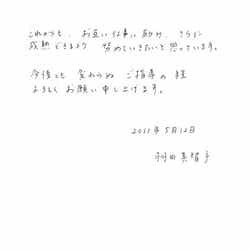 これからも、お互い仕事に励み、さらに
成熟できるよう 努めていきたいと思っています。
今後とも 変わらぬ ご指導の 程
よろしく お願い申し上げます。
2011年5月12日
羽田美智子